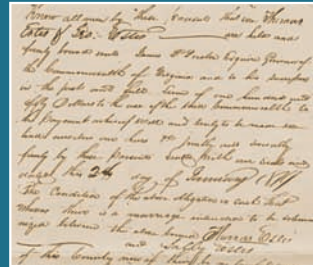 Know all men by these presents that we Thomas
Estes & Geo. Estes are held and
firmly bound unto James P Preston Esquire Governor of
the Commonwealth of Virginia and to his successors
in the just and full sum of one hundred and
fifty Dollars to the use of the said Commonwealth to
the payment whereof well and truly to be made we
bind ourselves our heirs & jointly and severally
firmly by these Presents with our seals and
dated this 24 day of January
The Condition of the above Obligation is such that
whereas there is a marriage intended to be solem
nized between the above bound Estes
and Sally Estes
of this County now if there be